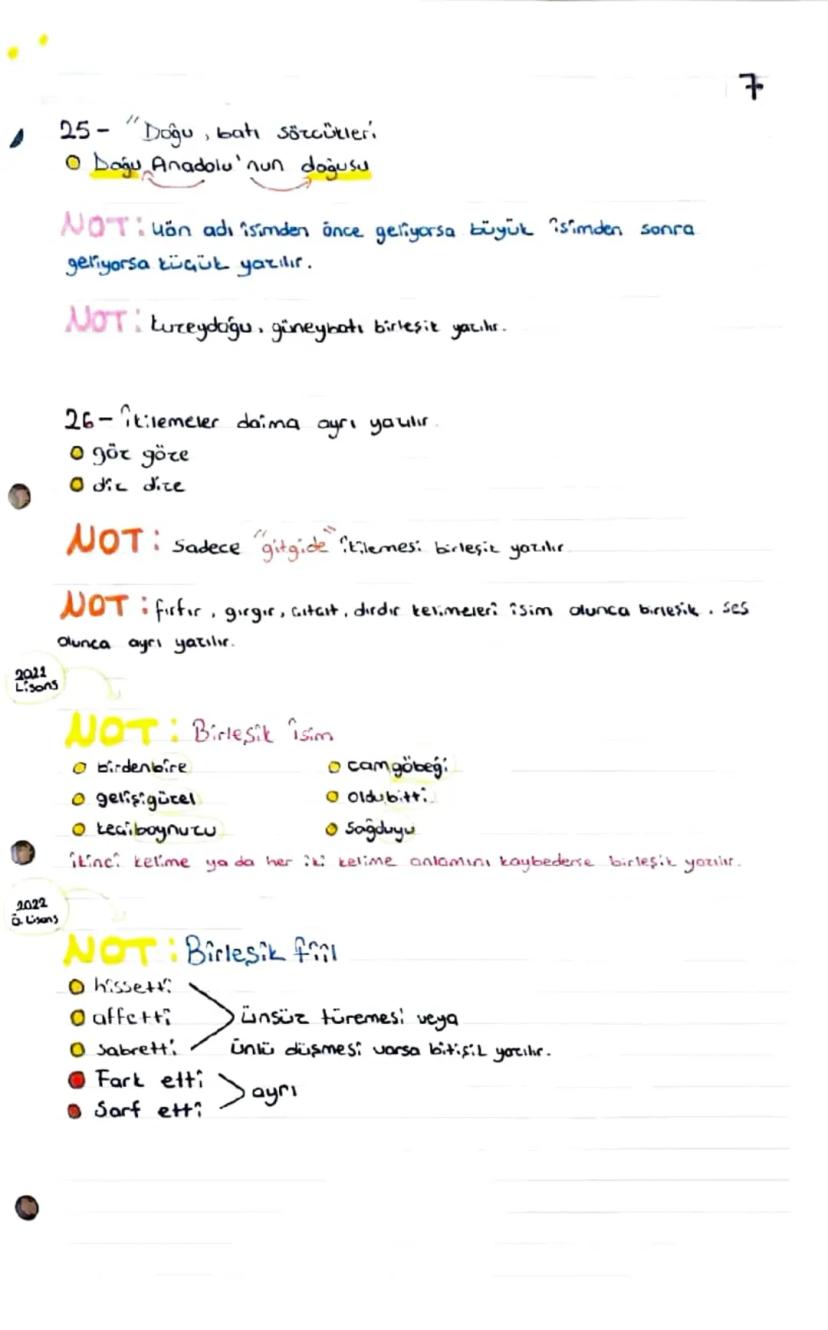 7
25- "Doğu, batı sözcükleri
Doğu Anadolu'nun doğusu
NOT: Yön adı isimden önce geliyorsa büyük isimden sonra
geliyorsa küçük yazılır.
NOT: kuzeydoğu, güneybatı birleşik yazılır.
26- İkilemeler daima ayrı yazılır.
göz göze
diz dize
NOT: Sadece "gitgide" ikilemesi birleşik yazılır.
NOT: fırfır, gırgır, cıtcıt, dırdır kelimeleri isim olunca birleşik, ses
olunca ayrı yazılır.
2022
Lisans
NOT: Birleşik isim
birdenbire camgöbeği
gelişigüzel oldubitti
keçiboynuzu Sağduyu
ikinci kelime ya da her iki kelime anlamını kaybederse birleşik yazılır.
2022
Ö. Lisans
NOT: Birleşik fiil
hissetti
affetti ünsüz türemesi veya
Sabretti ünlü düşmesi varsa bitişik yazılır.
Fark etti
Sarf etti ayrı